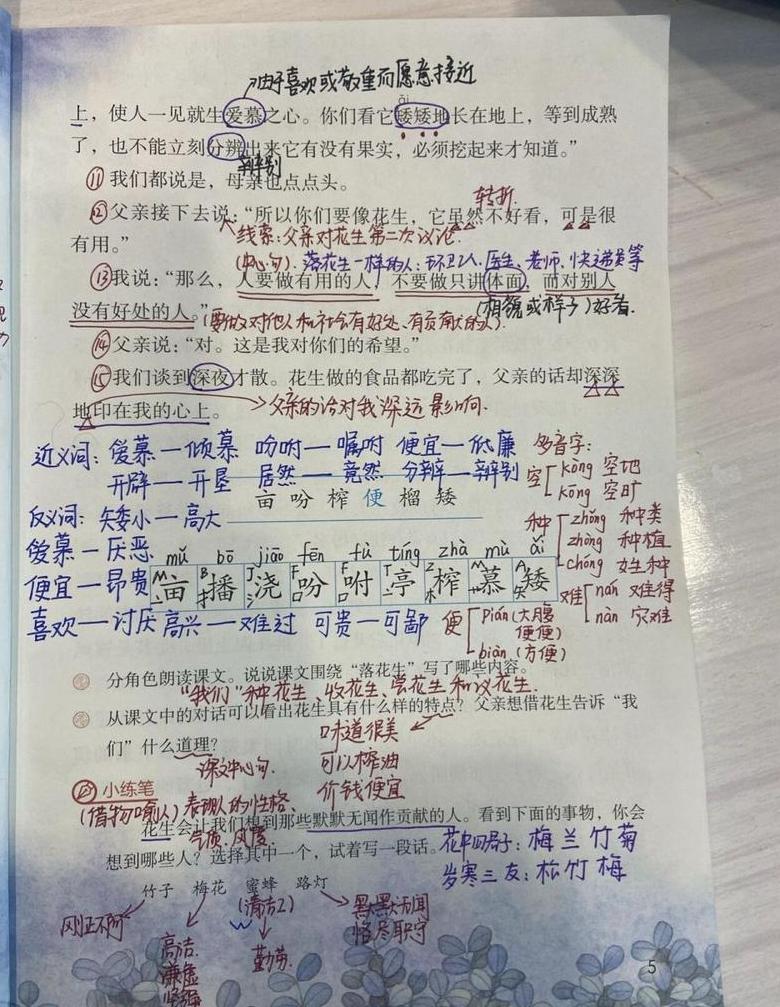 由于喜欢或敬重而愿意接近
ǎi
上，使人一见就生爱慕之心。你们看它矮矮地长在地上，等到成熟
了，也不能立刻分辨出来它有没有果实，必须挖起来才知道。”
辨别
⑪我们都说是，母亲也点点头。
转折.
⑫父亲接下去说：“所以你们要像花生，它虽然不好看，可是很
有用。”
线索：父亲对花生第二次议论.
(中心句). 落花生一样的人：环卫工人、医生、老师、快递员等
⑬我说：“那么，人要做有用的人，不要做只讲体面，而对别人
没有好处的人。”
(相貌或样子)好看.
(要做对他人和社会有好处、有贡献的人).
⑭父亲说：“对。这是我对你们的希望。”
⑮我们谈到深夜才散。花生做的食品都吃完了，父亲的话却深深
地印在我的心上。
父亲的话对我深远影响.
近义词：爱慕—倾慕 吩咐—嘱咐 便宜—低廉
开辟—开垦 居然—竟然 分辨—辨别
多音字：
空 kōng 空地
kōng 空旷
亩 吩 榨 便 榴 矮
反义词：矮小—高大
种 zhǒng 种类
zhòng 种植
chóng 姓种
爱慕—厌恶
mǔ bō jiāo fēn fù tíng zhà mù ǎi
便宜—昂贵
亩 播 浇 吩 咐 亭 榨 慕 矮
难 nán 难得
nàn 灾难
喜欢—讨厌 高兴—难过 可贵—可鄙
便 pián (大腹便便)
biàn (方便)
分角色朗读课文。说说课文围绕“落花生”写了哪些内容。
“我们”种花生、收花生、尝花生和议花生.
从课文中的对话可以看出花生具有什么样的特点？父亲想借花生告诉“我
们”什么道理？
味道很美
可以榨油
价钱便宜
课文中心句.
小练笔
(借物喻人) 表现人的性格、
气质、风度
花生会让我们想到那些默默无闻作贡献的人。看到下面的事物，你会
想到哪些人？选择其中一个，试着写一段话。
花中四君子：梅 兰 竹 菊
岁寒三友：松 竹 梅
竹子 梅花 蜜蜂 路灯
(清洁工)
刚正不阿
高洁
谦虚
坚强
勤劳.
默默无闻
恪尽职守
5